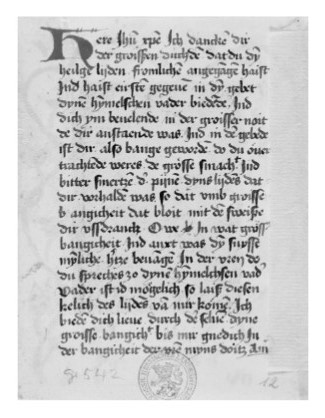 Here Jhū xpē Ich dancke dir
der groissen duchdē dat du dy
heilge lyden fromlichē angegāgē haist
Ind haist eirste gegeuē in dy gebet
dyne hymelschen vader biedēde. Ind
dich ym beuelende in der groisser noit
de dir anstaende was. Ind in dē gebede
ist dir also bange gewordē do du ouer
trachtede weres de grosse smacht Ind
bitter smertzē v pijnē dyns lydēs dat
dir vorhalde was so dat vmb groisse
b angicheit dat bloit mit dē sweisse
dir vssdranck Owe In wat gross
bangicheit Ind anxt was dy suysse
mȳliche htze beuāgē In der vren do
du spreches zo dyne hymelschen vad
Vader ist id mogelich so laiss diesen
kelich des lydēs vā mir komē Ich
biede dich lieue durch de selue dyne
groisse bangicht bis mir gnedich In
der bangicheit der vrē myns doitz Am
g. 542
12